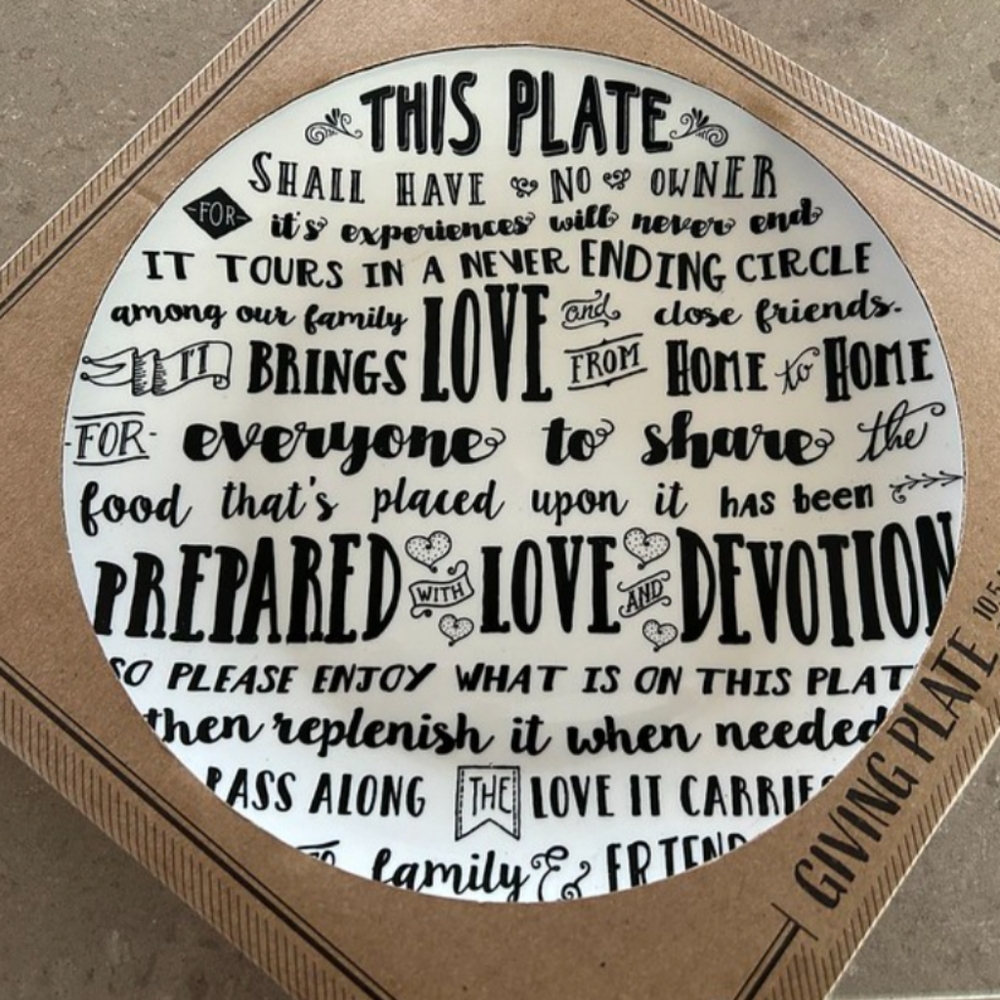 THIS PLATE
SHALL HAVE NO OWNER
FOR it's experiences will never end
IT TOURS IN A NEVER ENDING CIRCLE
among our family LOVE and close friends.
IT BRINGS FROM HOME to HOME
FOR everyone to share the
food that's placed upon it has been
PREPARED WITH LOVE AND DEVOTION
SO PLEASE ENJOY WHAT IS ON THIS PLAT
then replenish it when needed
PASS ALONG THE LOVE IT CARRIES
family & FRIEND
GIVING PLATE 10.5